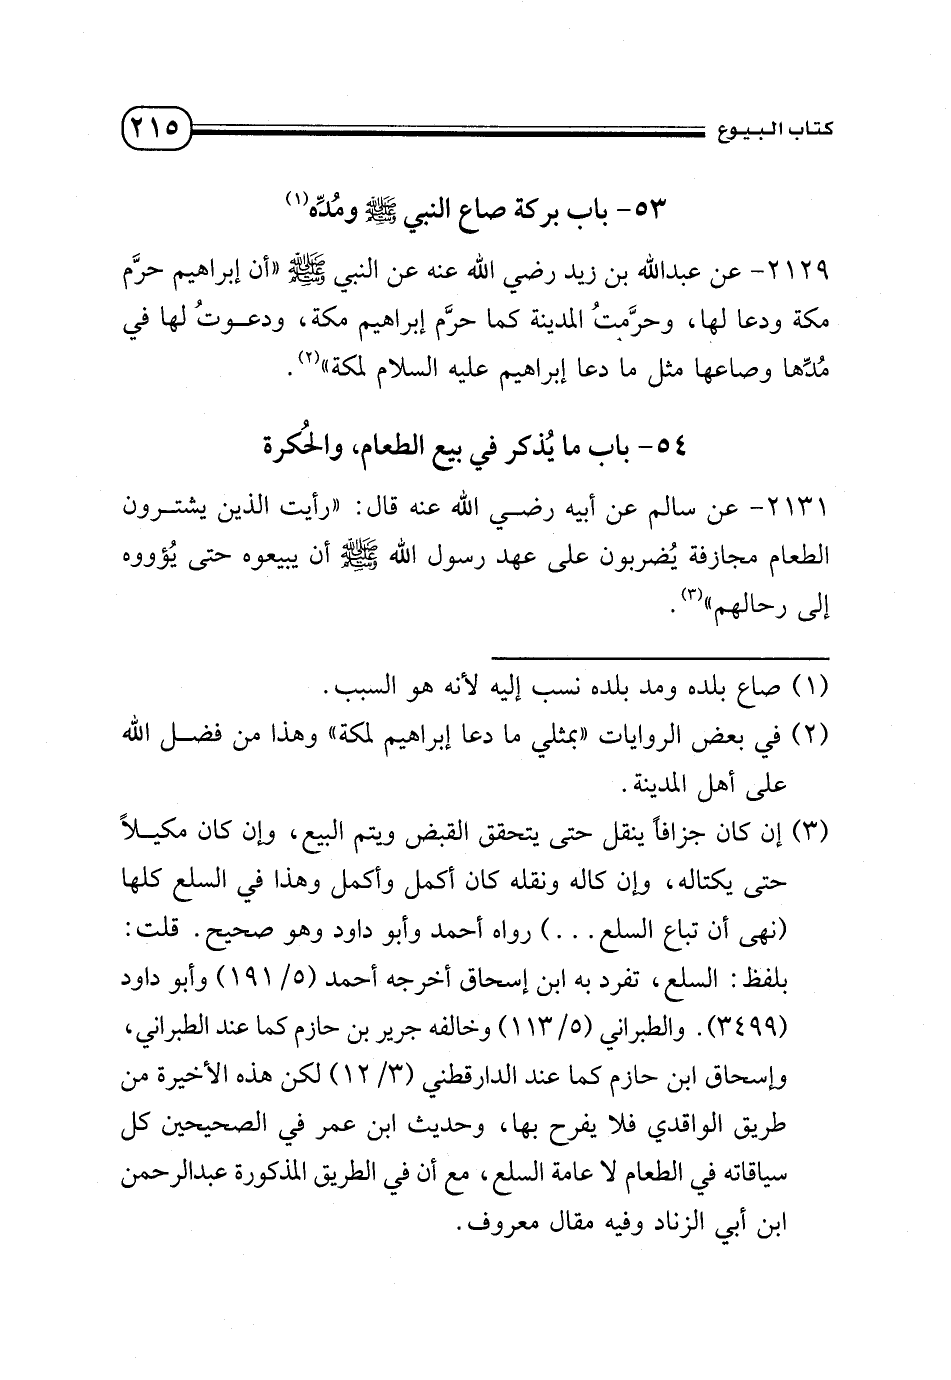 كتاب البيوع ٢١٥
٥٣- باب بركة صاع النبي ﷺ ومُدِّه(١)
٢١٢٩- عن عبدالله بن زيد رضي الله عنه عن النبي ﷺ «أن إبراهيم حرَّم
مكة ودعا لها، وحرَّمتُ المدينة كما حرَّم إبراهيم مكة، ودعوتُ لها في
مُدِّها وصاعها مثل ما دعا إبراهيم عليه السلام لمكة»(٢).
٥٤- باب ما يُذكر في بيع الطعام، والحُكرة
٢١٣١- عن سالم عن أبيه رضي الله عنه قال: «رأيت الذين يشترون
الطعام مجازفة يُضربون على عهد رسول الله ﷺ أن يبيعوه حتى يُؤووه
إلى رحالهم»(٣).
(١) صاع بلده ومد بلده نسب إليه لأنه هو السبب.
(٢) في بعض الروايات «بمثلي ما دعا إبراهيم لمكة» وهذا من فضل الله
على أهل المدينة.
(٣) إن كان جزافاً ينقل حتى يتحقق القبض ويتم البيع، وإن كان مكيلاً
حتى يكتاله، وإن كاله ونقله كان أكمل وأكمل وهذا في السلع كلها
(نهى أن تباع السلع...) رواه أحمد وأبو داود وهو صحيح. قلت:
بلفظ: السلع، تفرد به ابن إسحاق أخرجه أحمد (٥/ ١٩١) وأبو داود
(٣٤٩٩). والطبراني (٥/ ١١٣) وخالفه جرير بن حازم كما عند الطبراني،
وإسحاق ابن حازم كما عند الدارقطني (٣/ ١٢) لكن هذه الأخيرة من
طريق الواقدي فلا يفرح بها، وحديث ابن عمر في الصحيحين كل
سياقاته في الطعام لا عامة السلع، مع أن في الطريق المذكورة عبدالرحمن
ابن أبي الزناد وفيه مقال معروف.